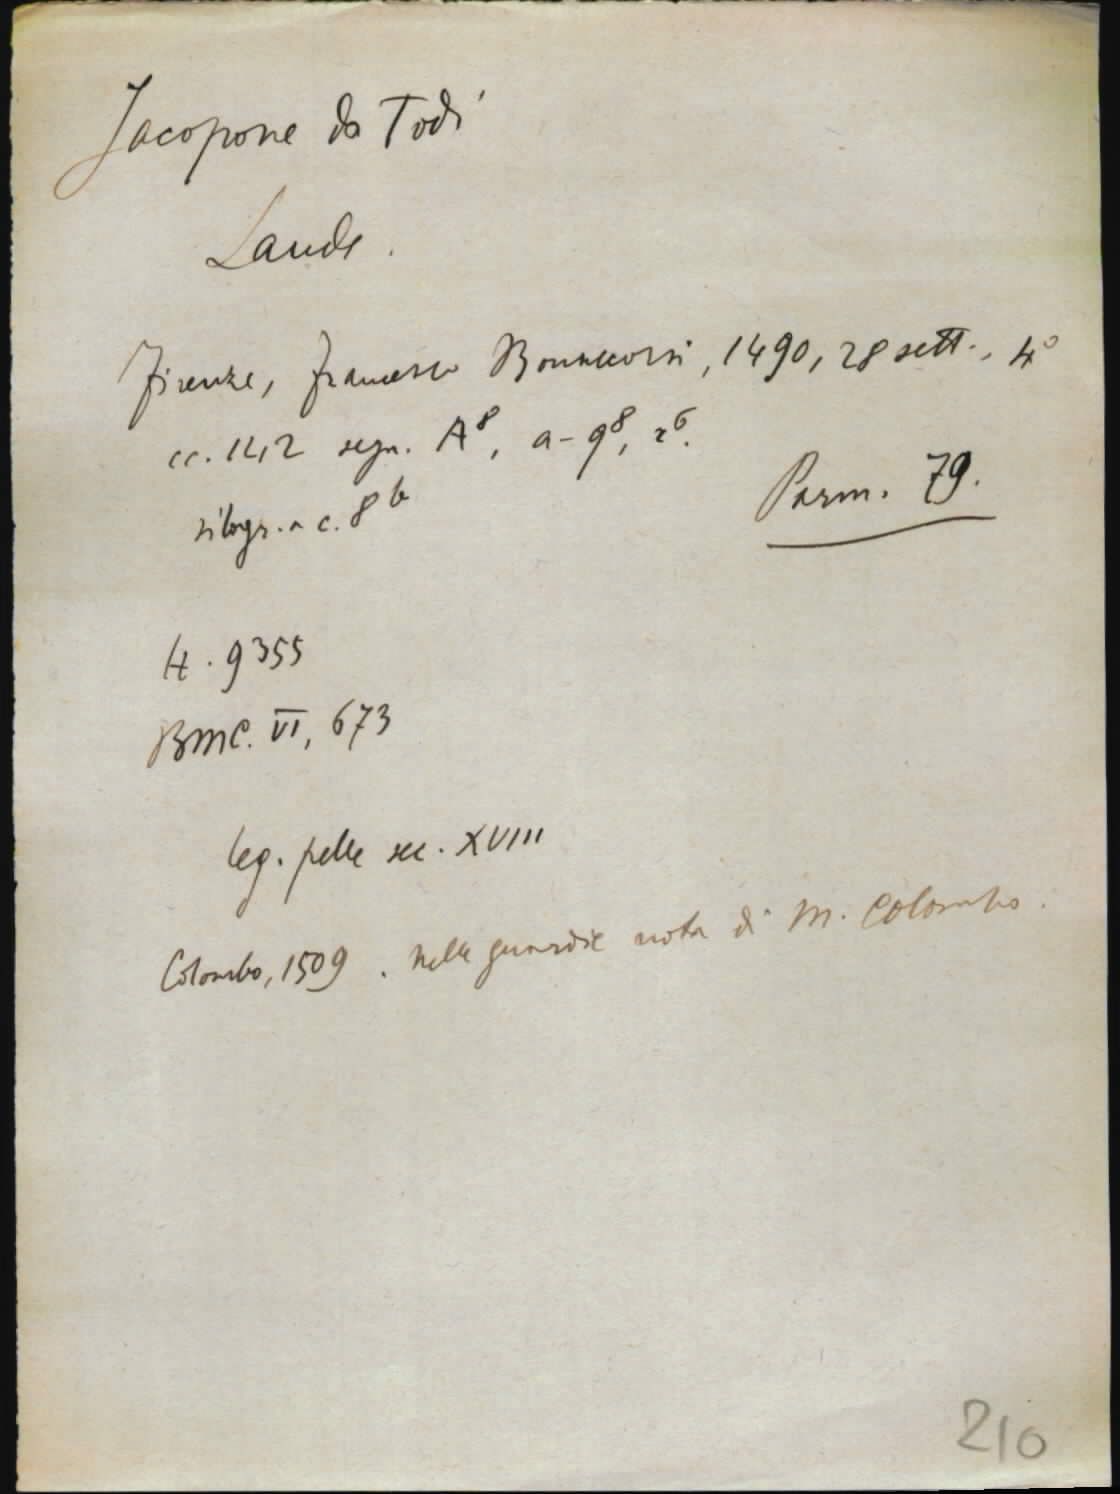 Jacopone da Todi
Laude.
Firenze, Francesco Bonaccorsi, 1490, 28 sett., 4°
cc. 142 segn. A⁸, a-q⁸, r⁶.
silogr. a c. 8 b
Parm. 79.
H. 9355
BMC. VI, 673
leg. pelle sec. XVIII
Colombo, 1509. Nelle guardie nota di M. Colombo.
210